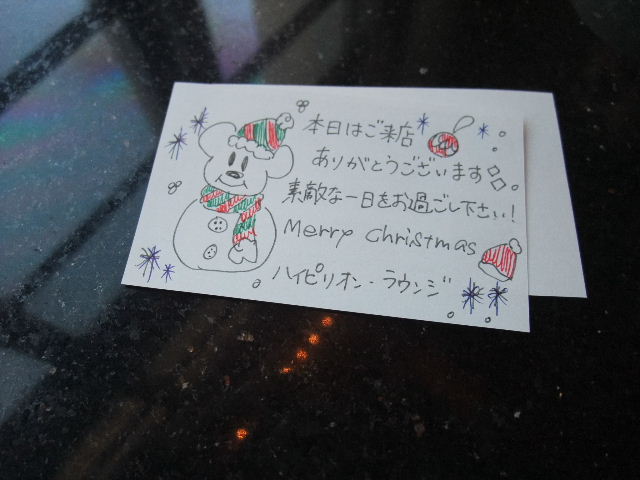 本日はご来店
ありがとうございます
素敵な一日をお過ごし下さい!
Merry Christmas
ハイピリオン・ラウンジ